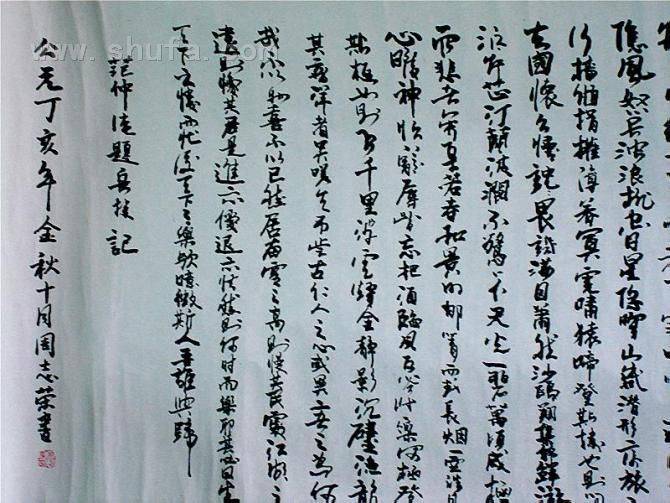 風怒号浊浪排空日星隐曜山岳潜形商旅
行樯倾楫摧薄暮冥冥虎嘯猿啼登斯樓也則
去國懷鄉憂讒畏譏满目蕭然沙鷗翔集錦鱗游
泳岸芷汀蘭波瀾不驚一碧萬頃感極
而悲者矣至若春和景明郁青青而或長烟一空皓月
心曠神怡寵辱皆忘把酒臨風
斯樓也則千里浮雲躍金靜影沉璧漁歌
其喜洋者矣嗟夫古仁人之心或異二者之為何
哉不以物喜不以己悲居廟堂之高則憂其民處江湖之
遠則憂其君是進亦憂退亦憂然則何時而樂耶其必曰先
天下之憂而憂後天下之樂歟噫微斯人吾誰與歸
范仲淹題岳樓記
公元丁亥年金秋十月周志荣書
www.shufa.com